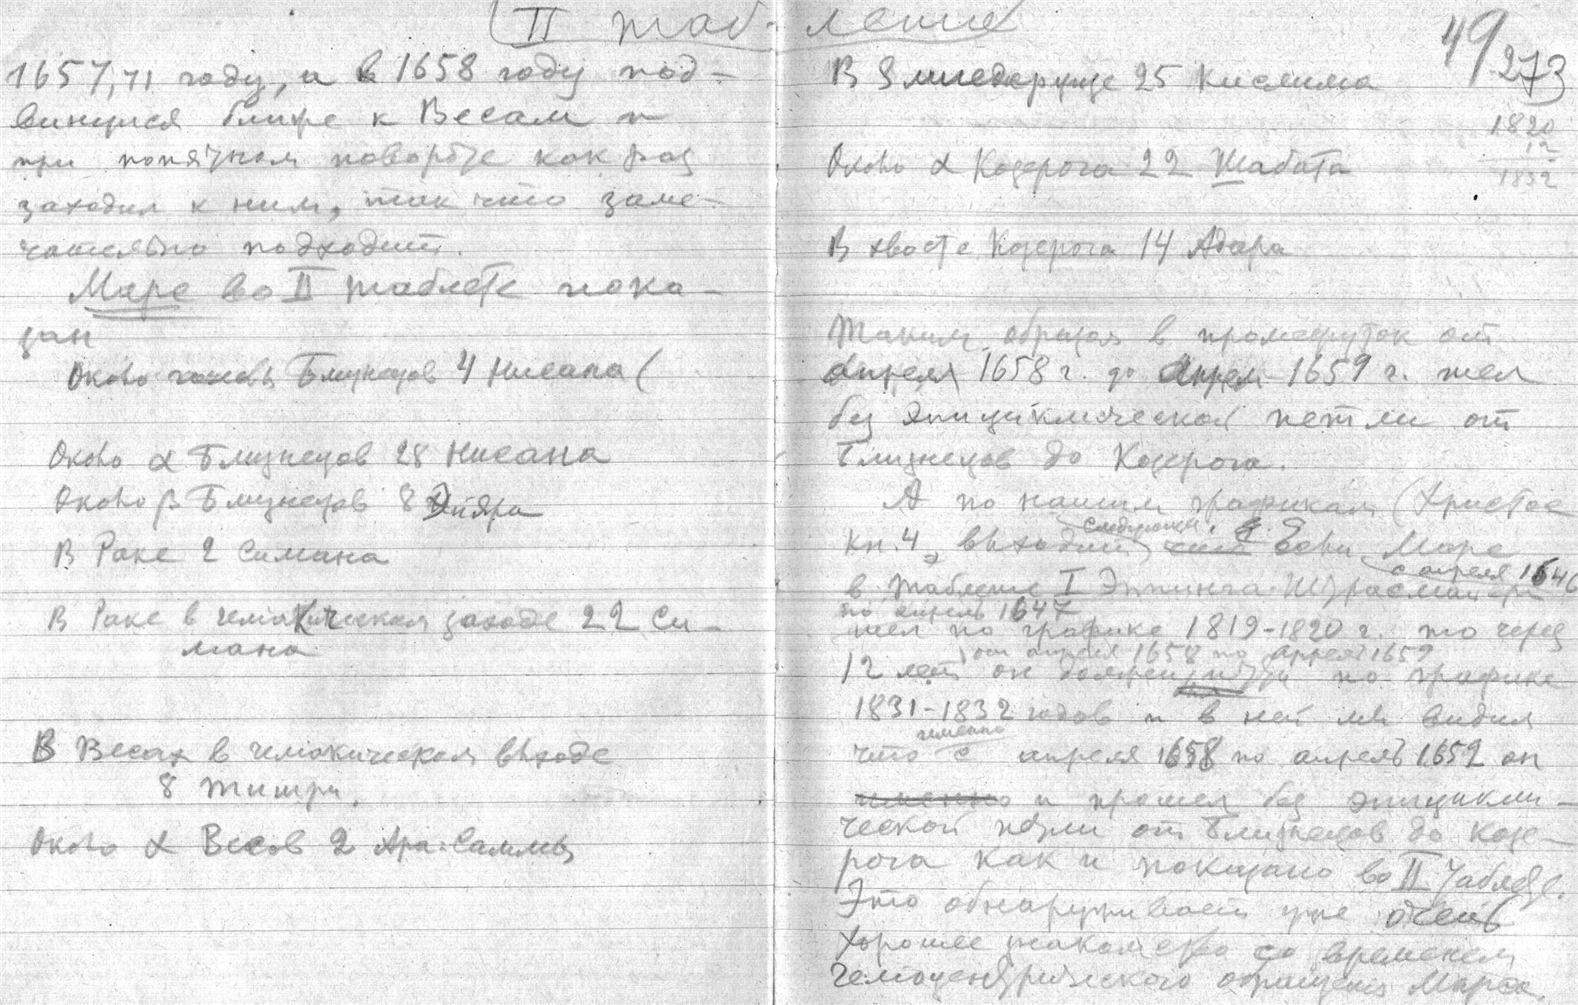 II таб-ление
1657,71 году, а в 1658 году под-
винулся ближе к Весам и
при попятном повороте как раз
заходил к ним, так что заме-
чательно подходит.
Марс во II таблете пока-
зан
Около головы Близнецов 4 Нисана (
Около α Близнецов 28 Нисана
Около β Близнецов 8 Эйяра
В Раке 2 Симана
В Раке в гелиакическом заходе 22 Си-
мана
В Весах в гелиакическом входе
8 Тишри.
Около α Весов 2 Ара-Самлы
49
273
В 25 Кислима
1820
12
1832
Около α Козерога 22 Шабата
В хвосте Козерога 14 Адара
Таким образом в промежуток от
апреля 1658 г. до апреля 1659 г. шел
без эпициклической петли от
Близнецов до Козерога.
А по нашим графикам (Христос
кн. 4, выходит следующее. Если Марс
с апреля 1646
в таблице I Эппинга-Штрасмайера
по апрель 1647
шел по графике 1819-1820 г. то через
от апреля 1658 по апрель 1659
12 лет он должен идти по графике
1831-1832 годов и в ней мы видим
именно
что с апреля 1658 по апрель 1659 он
и прошел без эпицикли-
ческой петли от Близнецов до Козе-
рога как и показано во II таблете.
Это обнаруживает уже очень
хорошее знакомство со временем
гелиоцентрического обращения Марса